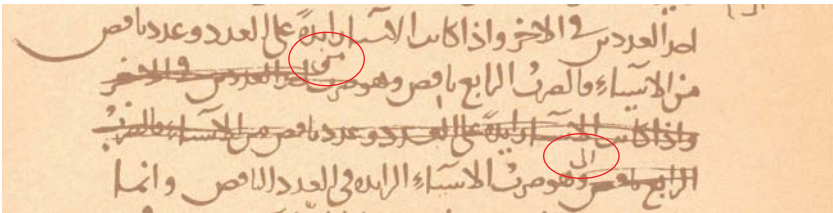 احد العددين في الاخر واذا كانت الاشيا زايدة على العدد وعدد ناقص
من
من الاشياء فالضرب الرابع ناقص وهو ضرب احد العددين في الاخر
واذا كانت الاشيا زايدة على العدد وعدد ناقص من الاشياء فالضرب
الى
الرابع ناقص وهو ضرب الاشياء الزايده في العدد الناقص وانما